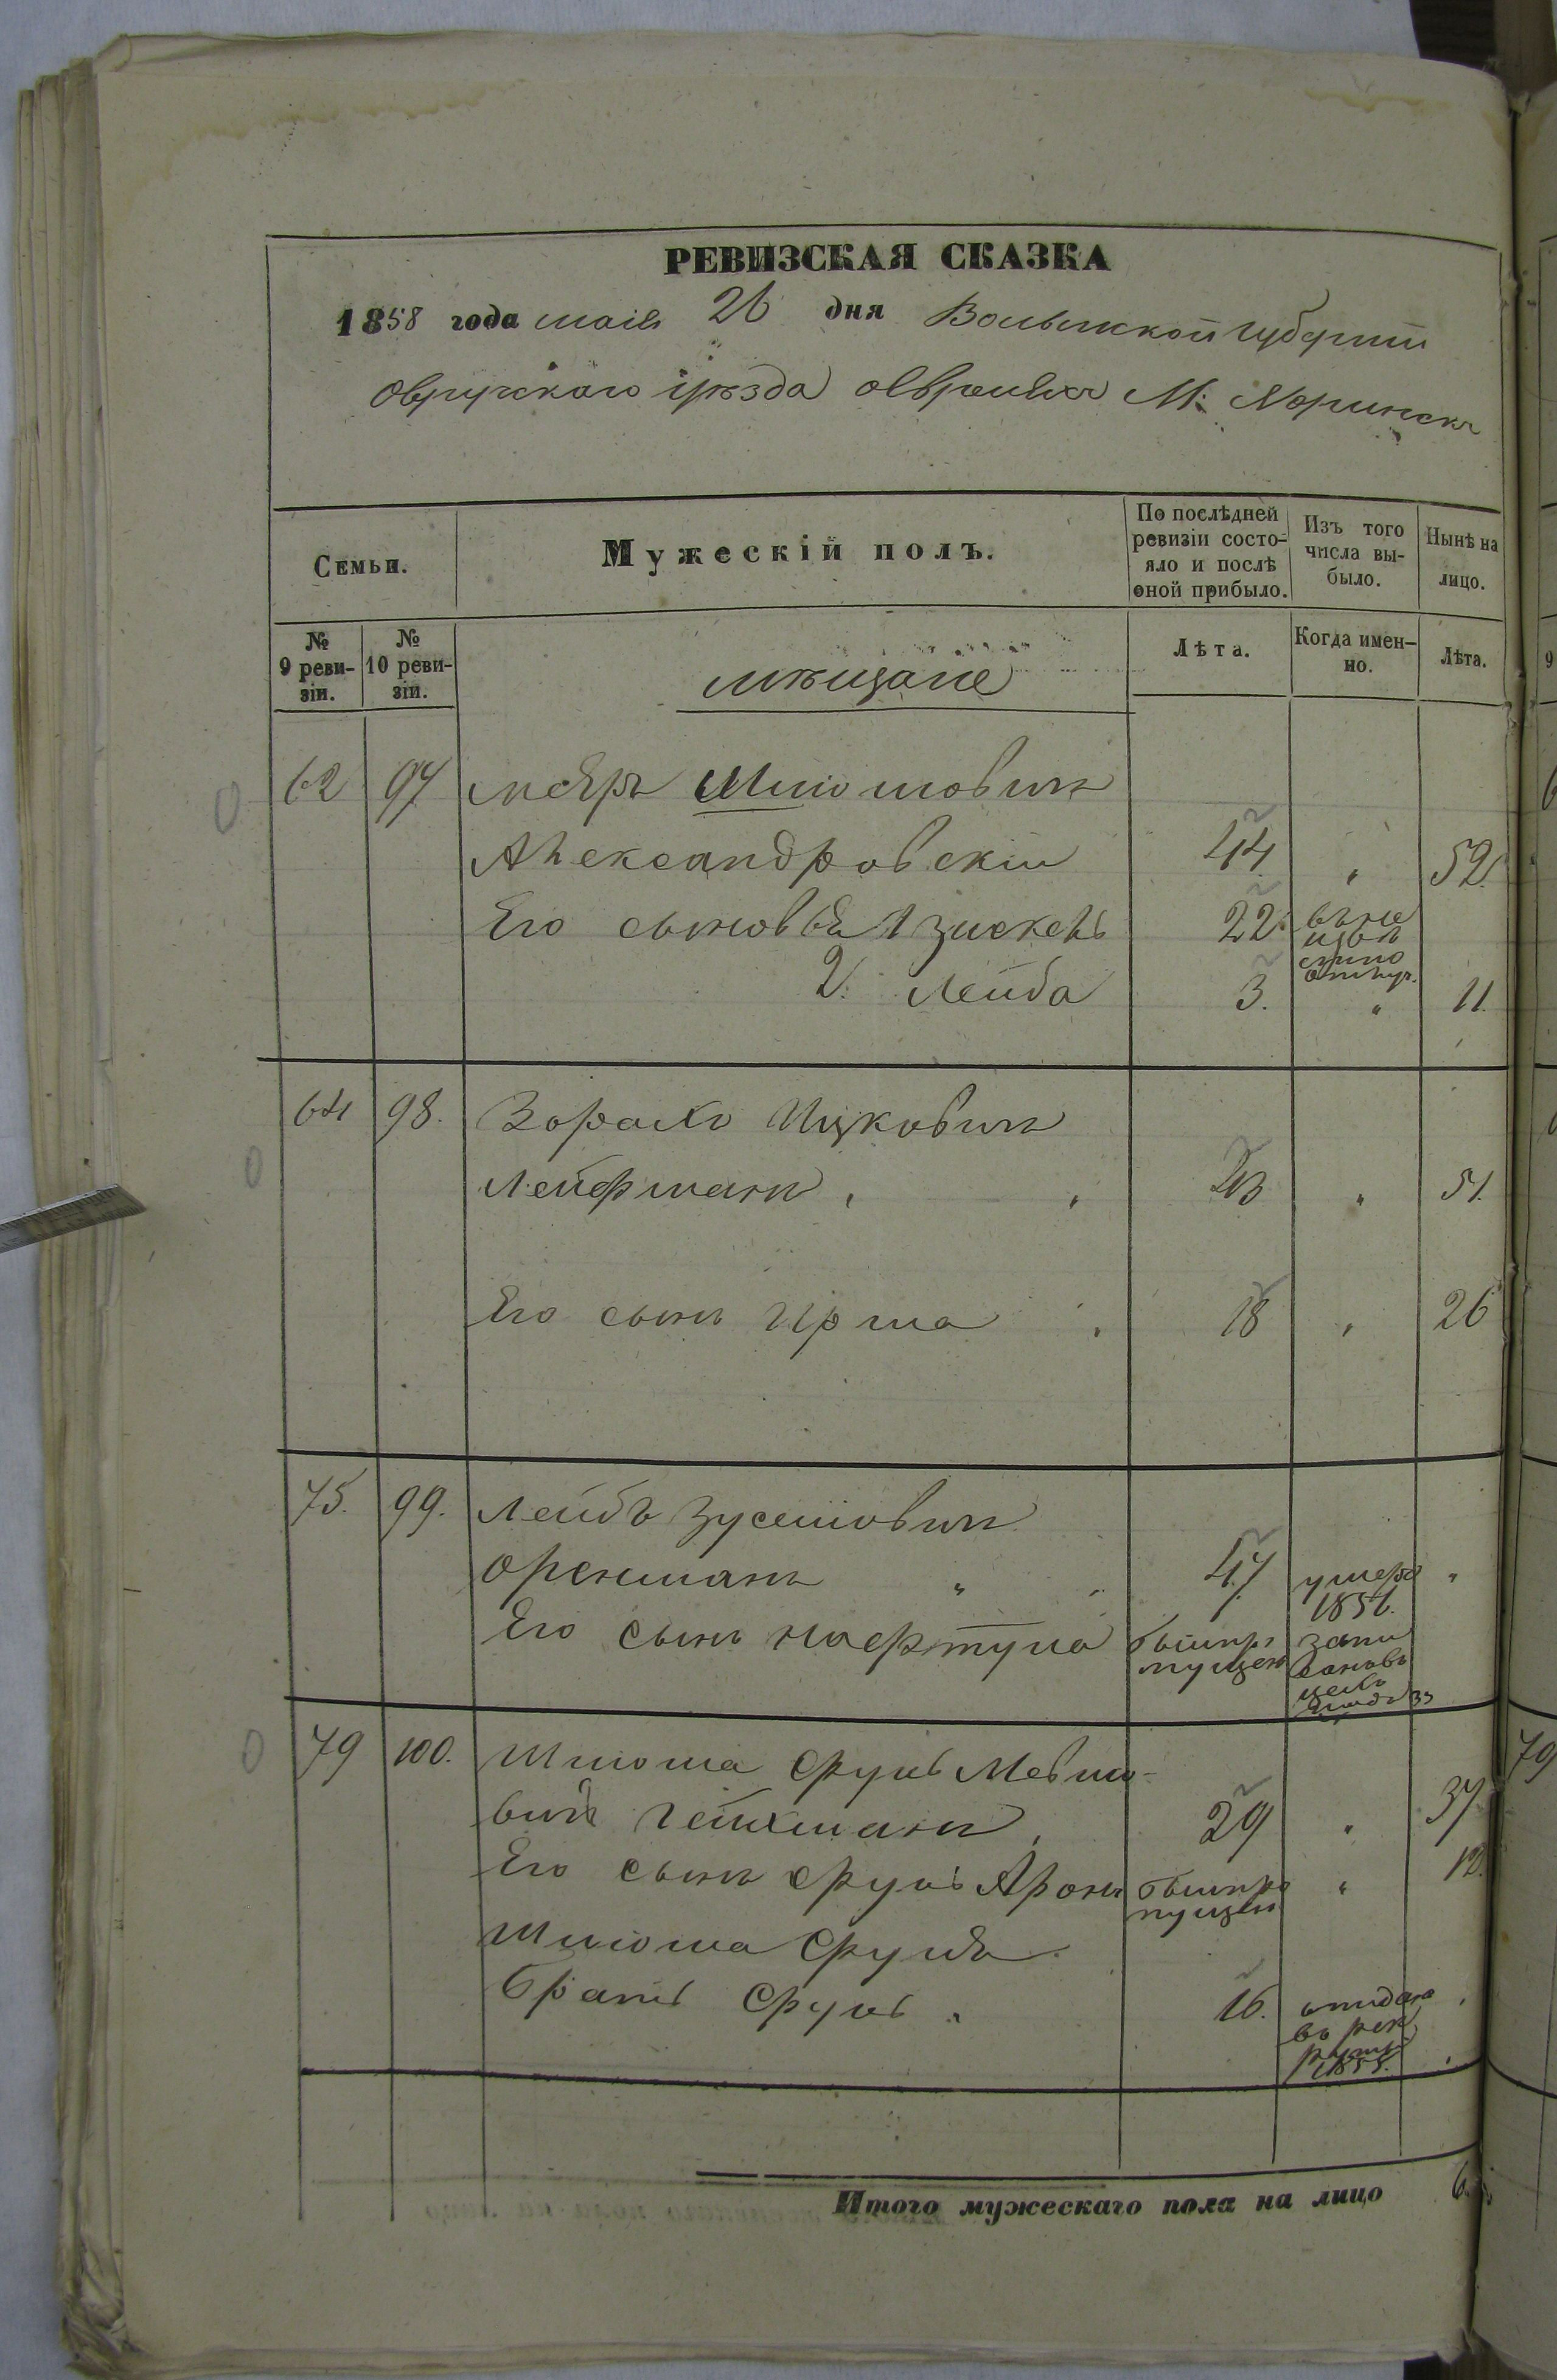 РЕВИЗСКАЯ СКАЗКА
1858 года маія 26 дня Волынской губерніи
Овручскаго уѣзда о Евреяхъ М: Норинска
Семьи.
Мужескій полъ.
По послѣдней ревизіи состо-яло и послѣ оной прибыло.
Изъ того числа вы-было.
Нынѣ на лицо.
№ 9 реви-зіи.
№ 10 реви-зіи.
мѣщане
Лѣта.
Когда имен-но.
Лѣта.
62 97 Мееръ Шліомовичъ
Александровскій 44. " 52.
Его сыновья 1 Зискель 22.
2. Лейба 3. " 11.
64 98. Зорахъ Ицковичъ
Лейфманъ " 51.
Его сынъ Ирша 18 " 26
75. 99. Лейбъ Зусевичъ
Оренманъ " 47 умеръ 1856. "
Его сынъ Нафтула былъ пропущенъ
79 100. Шліома Сруль
вичъ Гейхманъ 29 " 37
Его сынъ Сруль Аронъ былъ пропущенъ " 12.
Шліома Сруля
братъ Сруль " 16. отданъ въ рекруты 1855.
Итого мужескаго пола на лицо 6.
79